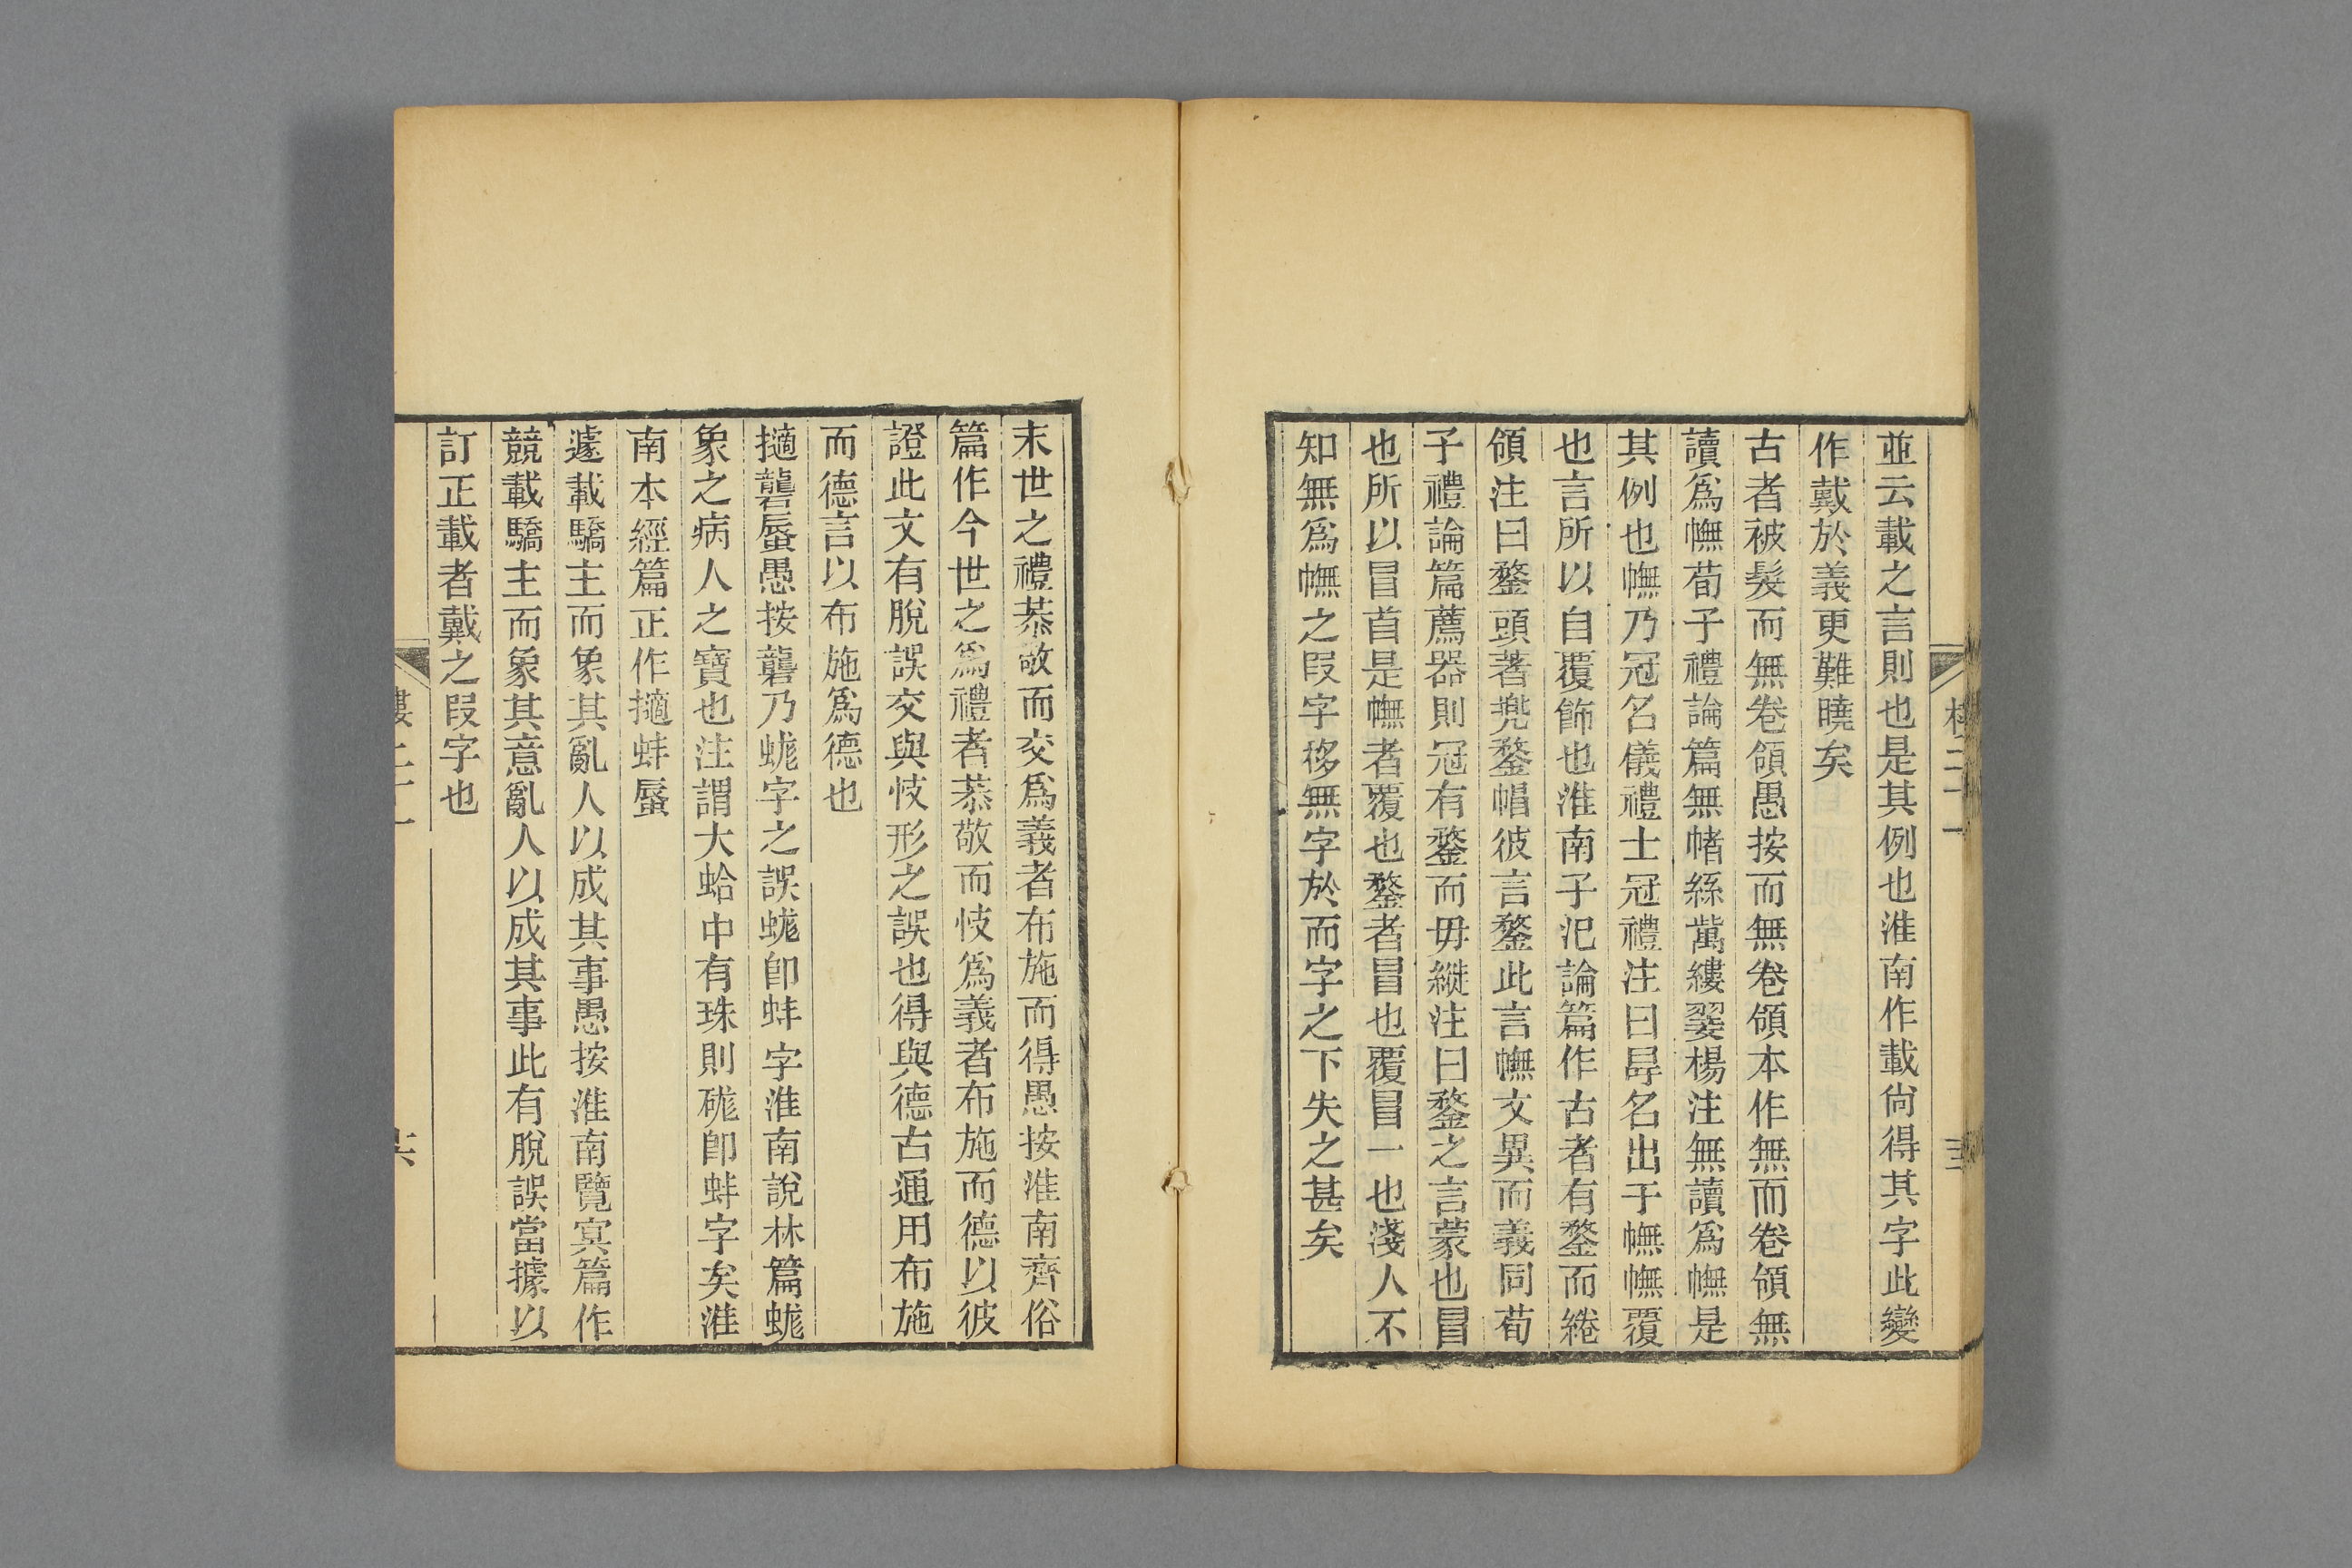 並云載之言則也是其例也淮南作載尙得其字此變
作戴於義更難曉矣
古者被髮而無卷領愚按而無卷領本作無而卷領無
讀爲幠荀子禮論篇無帾絲歶縷翣楊注無讀爲幠是
其例也幠乃冠名儀禮士冠禮注曰冔名出于幠幠覆
也言所以自覆飾也淮南子氾論篇作古者有鍪而綣
領注曰鍪頭著兜鍪帽彼言鍪此言幠文異而義同荀
子禮論篇薦器則冠有鍪而毋縰注曰鍪之言蒙也冒
也所以冒首是幠者覆也鍪者冒也覆冒一也淺人不
知無爲幠之叚字移無字於而字之下失之甚矣
末世之禮恭敬而交爲義者布施而得愚按淮南齊俗
篇作今世之爲禮者恭敬而忮爲義者布施而德以彼
證此文有脫誤交與忮形之誤也得與德古通用布施
而德言以布施爲德也
擿礲蜃愚按礲乃蛖字之誤蛖卽蚌字淮南說林篇蛖
象之病人之寶也注謂大蛤中有珠則硥卽蚌字矣淮
南本經篇正作擿蚌蜃
遽載驕主而象其亂人以成其事愚按淮南覽冥篇作
競載驕主而象其意亂人以成其事此有脫誤當據以
訂正載者戴之叚字也